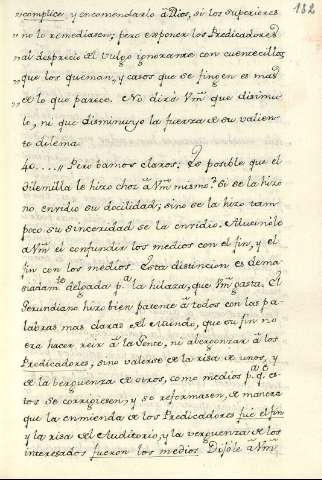 132
"complice, y encomendarlo à Dios, si los superiores
"no lo remediasen; pero exponer los Predicadores
"al desprecio del vulgo ignorante con cuentecillos
"que los queman, y casos que se fingen es mas
"de lo que parece. No dirà Vmd que disimu-
lo, ni que disminuyo la fuerza de su valien-
te dilema.
40..... " Pero bamos claros: Es posible que el
dilemilla le hizo choz à Vmd mismo? Si se la hizo
no envidio su docilidad; sino se la hizo tam-
poco su sinceridad se la envidio. Alucinòle
à Vmd el confundir los medios con el fin, y el
fin con los medios. Esta distincion es dema-
siadamte delgada pa la hilaza, que Vmd gasta. El
Gerundiano hizo bien patente à todos con las pa-
labras mas claras del Mundo, que su fin no
era hacer reir à la Gente, ni abergonzar à los
Predicadores, sino valerse de la risa de unos, y
de la berguenza de otros, como medios pa qe es-
tos se corrigiesen, y se reformasen, de manera
que la enmienda de los Predicadores fue el fin
y la risa del Auditorio, y la verguenza de los
interesados fueron los medios. Dijole à Vmd